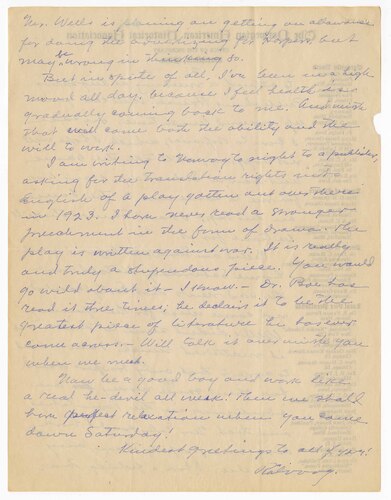 Mrs. Wells is planning on getting an allowance
for doing the for Harpers, but
may be wrong in thinking so.
But in spite of all, I've been in a high
mood all day, because I feel health is
gradually coming back to me. And with
that will come both the ability and the
will to work.
I am writing to Norway to-night to a publisher,
asking for the translation rights into
English of a play gotten out over there
in 1923. I have never read a stronger
preachment in the form of drama. The
play is written against war. It is really
and truly a stupendous piece. You would
go wild about it - I know. - Dr. Boe has
read it three times; he declares it to be the
greatest piece of literature he has ever
come across. - Will talk it over with you
when we meet.
Now be a good boy and work like
a real he-devil all week! Then we shall
have perfect relaxation when you come
down Saturday!
Kindest greetings to all of you!
Rölvaag.